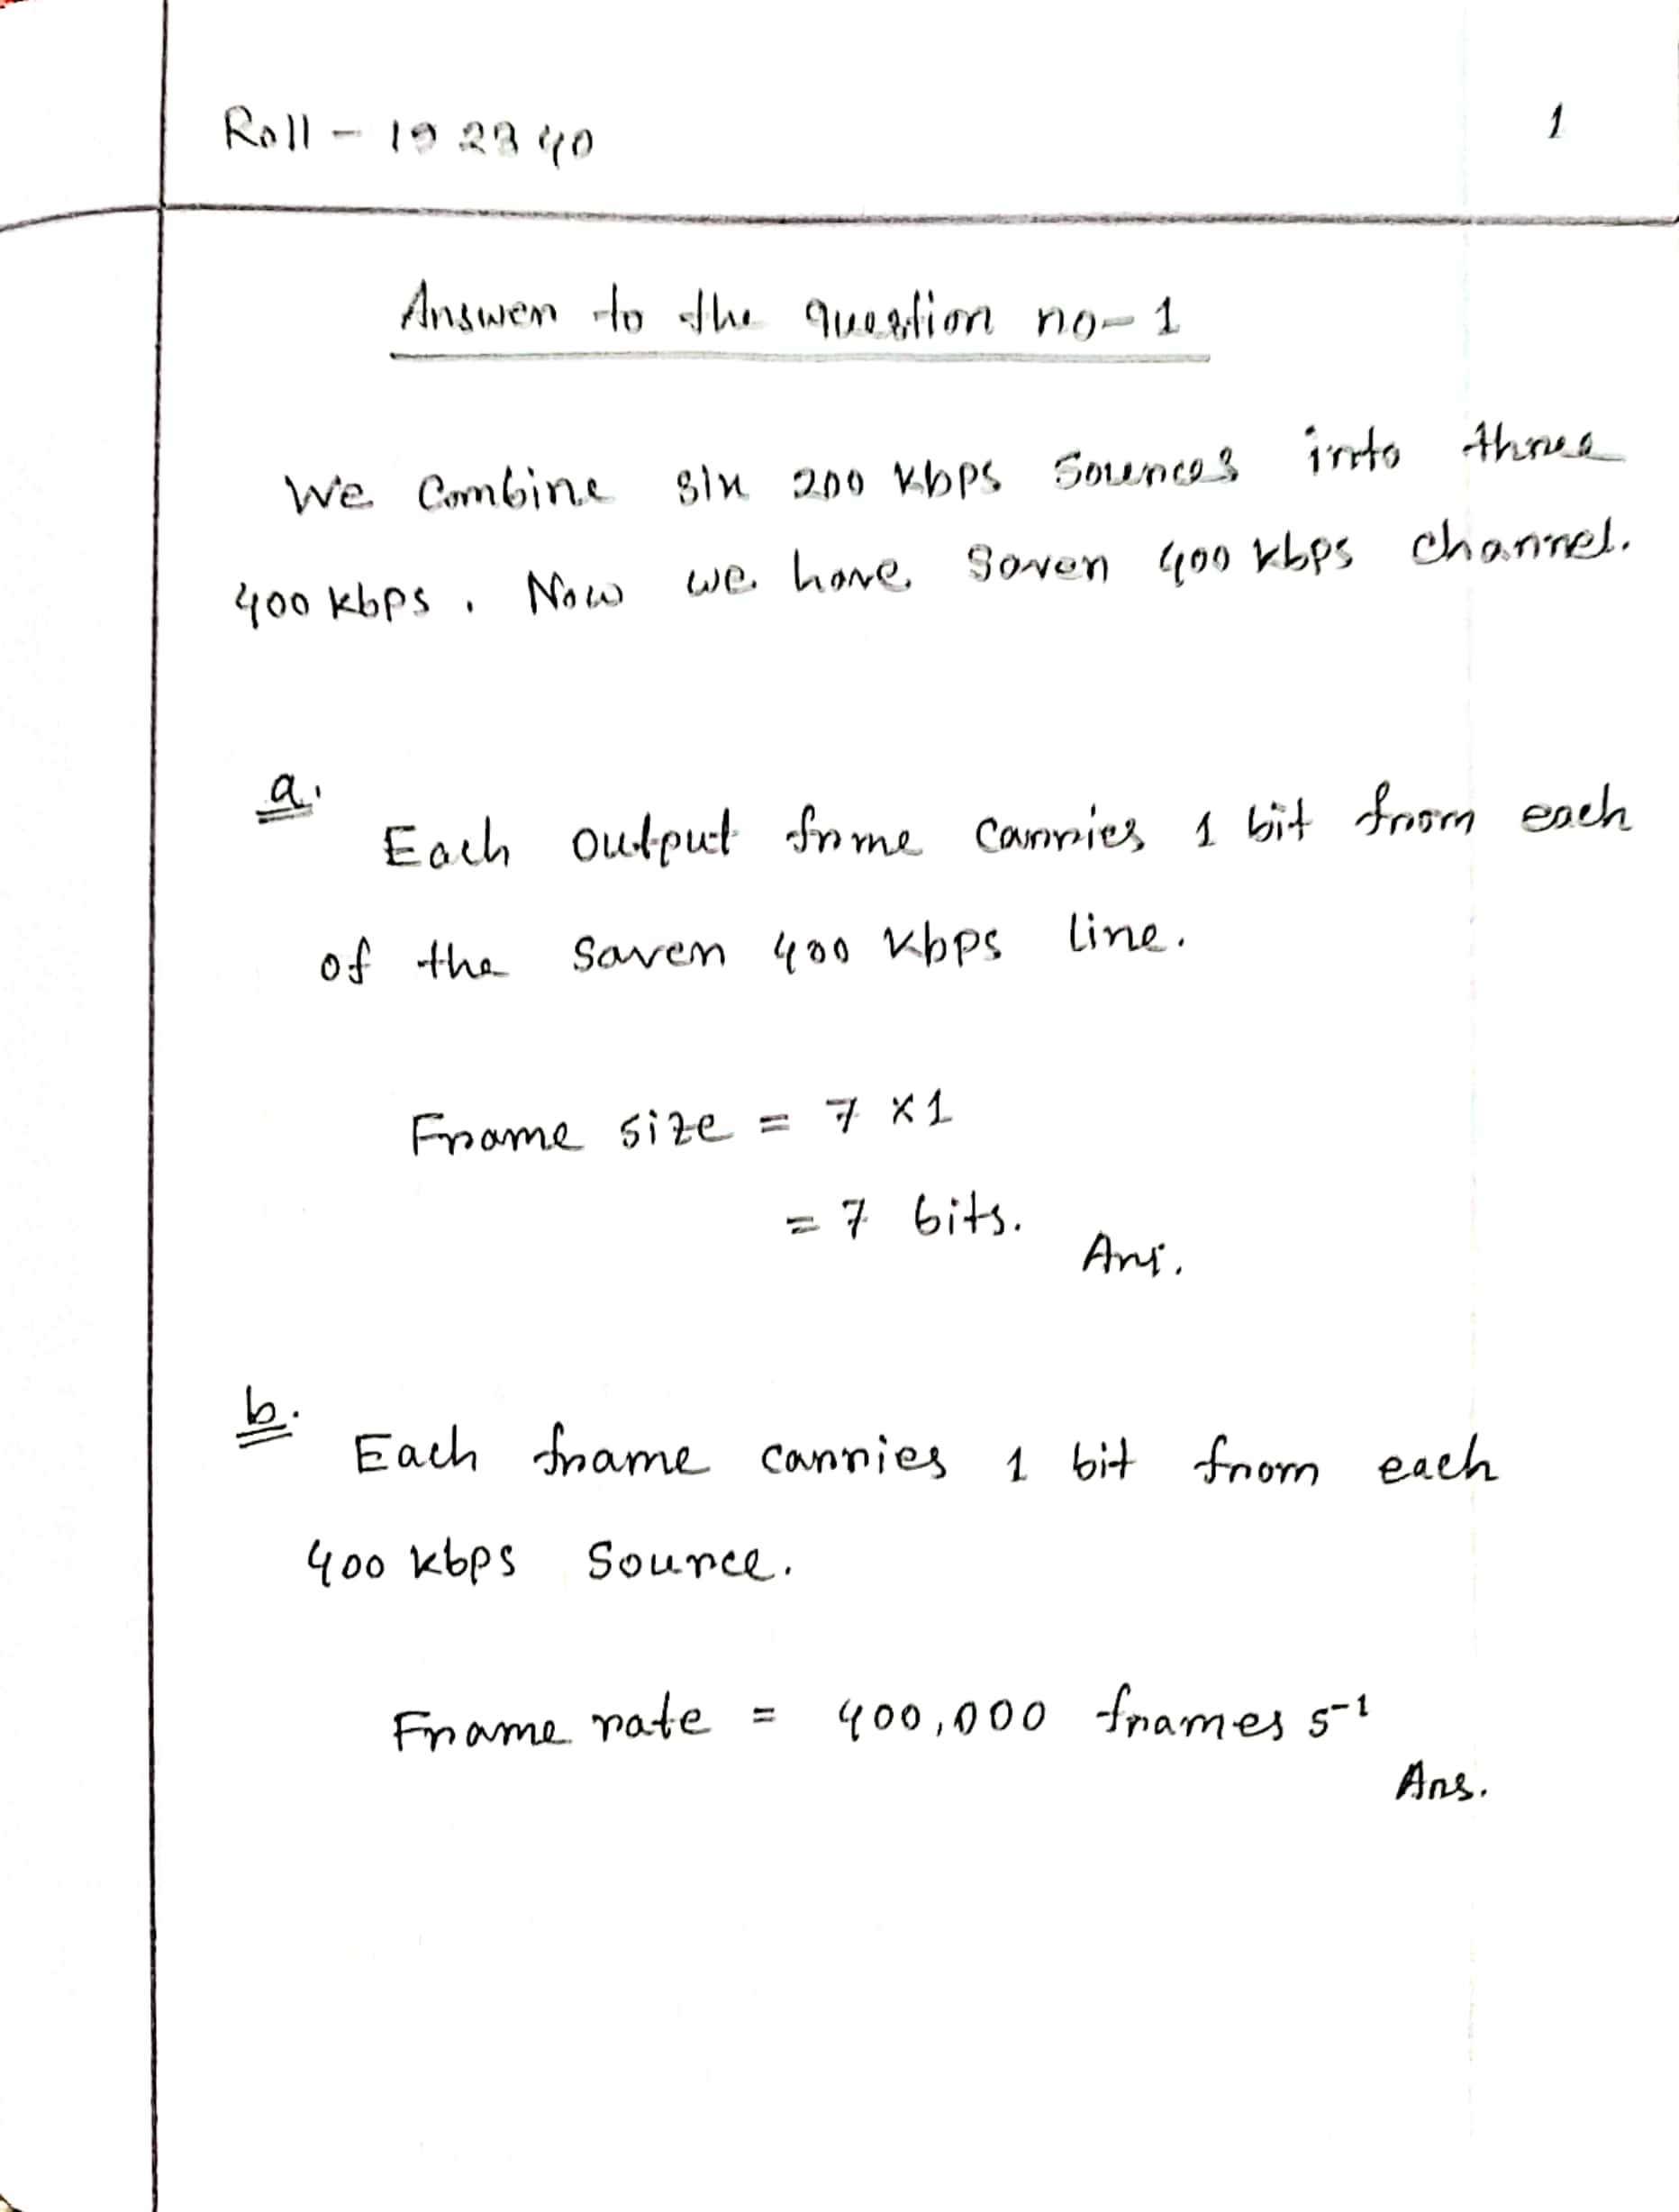 Roll - 192340
1
Answer to the question no-1
We Combine six 200 kbps Sources into three
400 kbps. Now we have Seven 400 kbps channel.
a.
Each output frame carries 1 bit from each
of the Seven 400 kbps line.
Frame size = 7 × 1
= 7 bits.
Ans.
b.
Each frame carries 1 bit from each
400 kbps Source.
Frame rate = 400,000 frames s⁻¹
Ans.